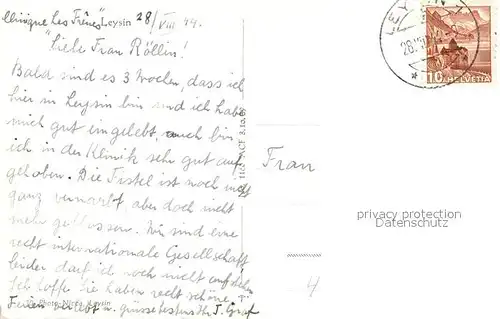 Clinique "Les Frênes" Leysin 28/VIII 44.
"Liebe Frau Röllin!
Bald sind es 3 Wochen, dass ich
hier in Leysin bin und ich habe
mich gut eingelebt, auch bin
ich in der Klinik sehr gut auf-
gehoben. Die Fistel ist noch nicht
ganz vernarbt, aber doch nicht
mehr geflossen. Wir sind eine
recht internationale Gesellschaft
leider darf ich noch nicht aufstehn.
Ich hoffe Sie haben recht schöne
Ferien verlebt u. grüsse bestens Ihr J. Graf
Photo Leysin
Frau
4
10 HELVETIA
LEYSIN
privacy protection
Datenschutz